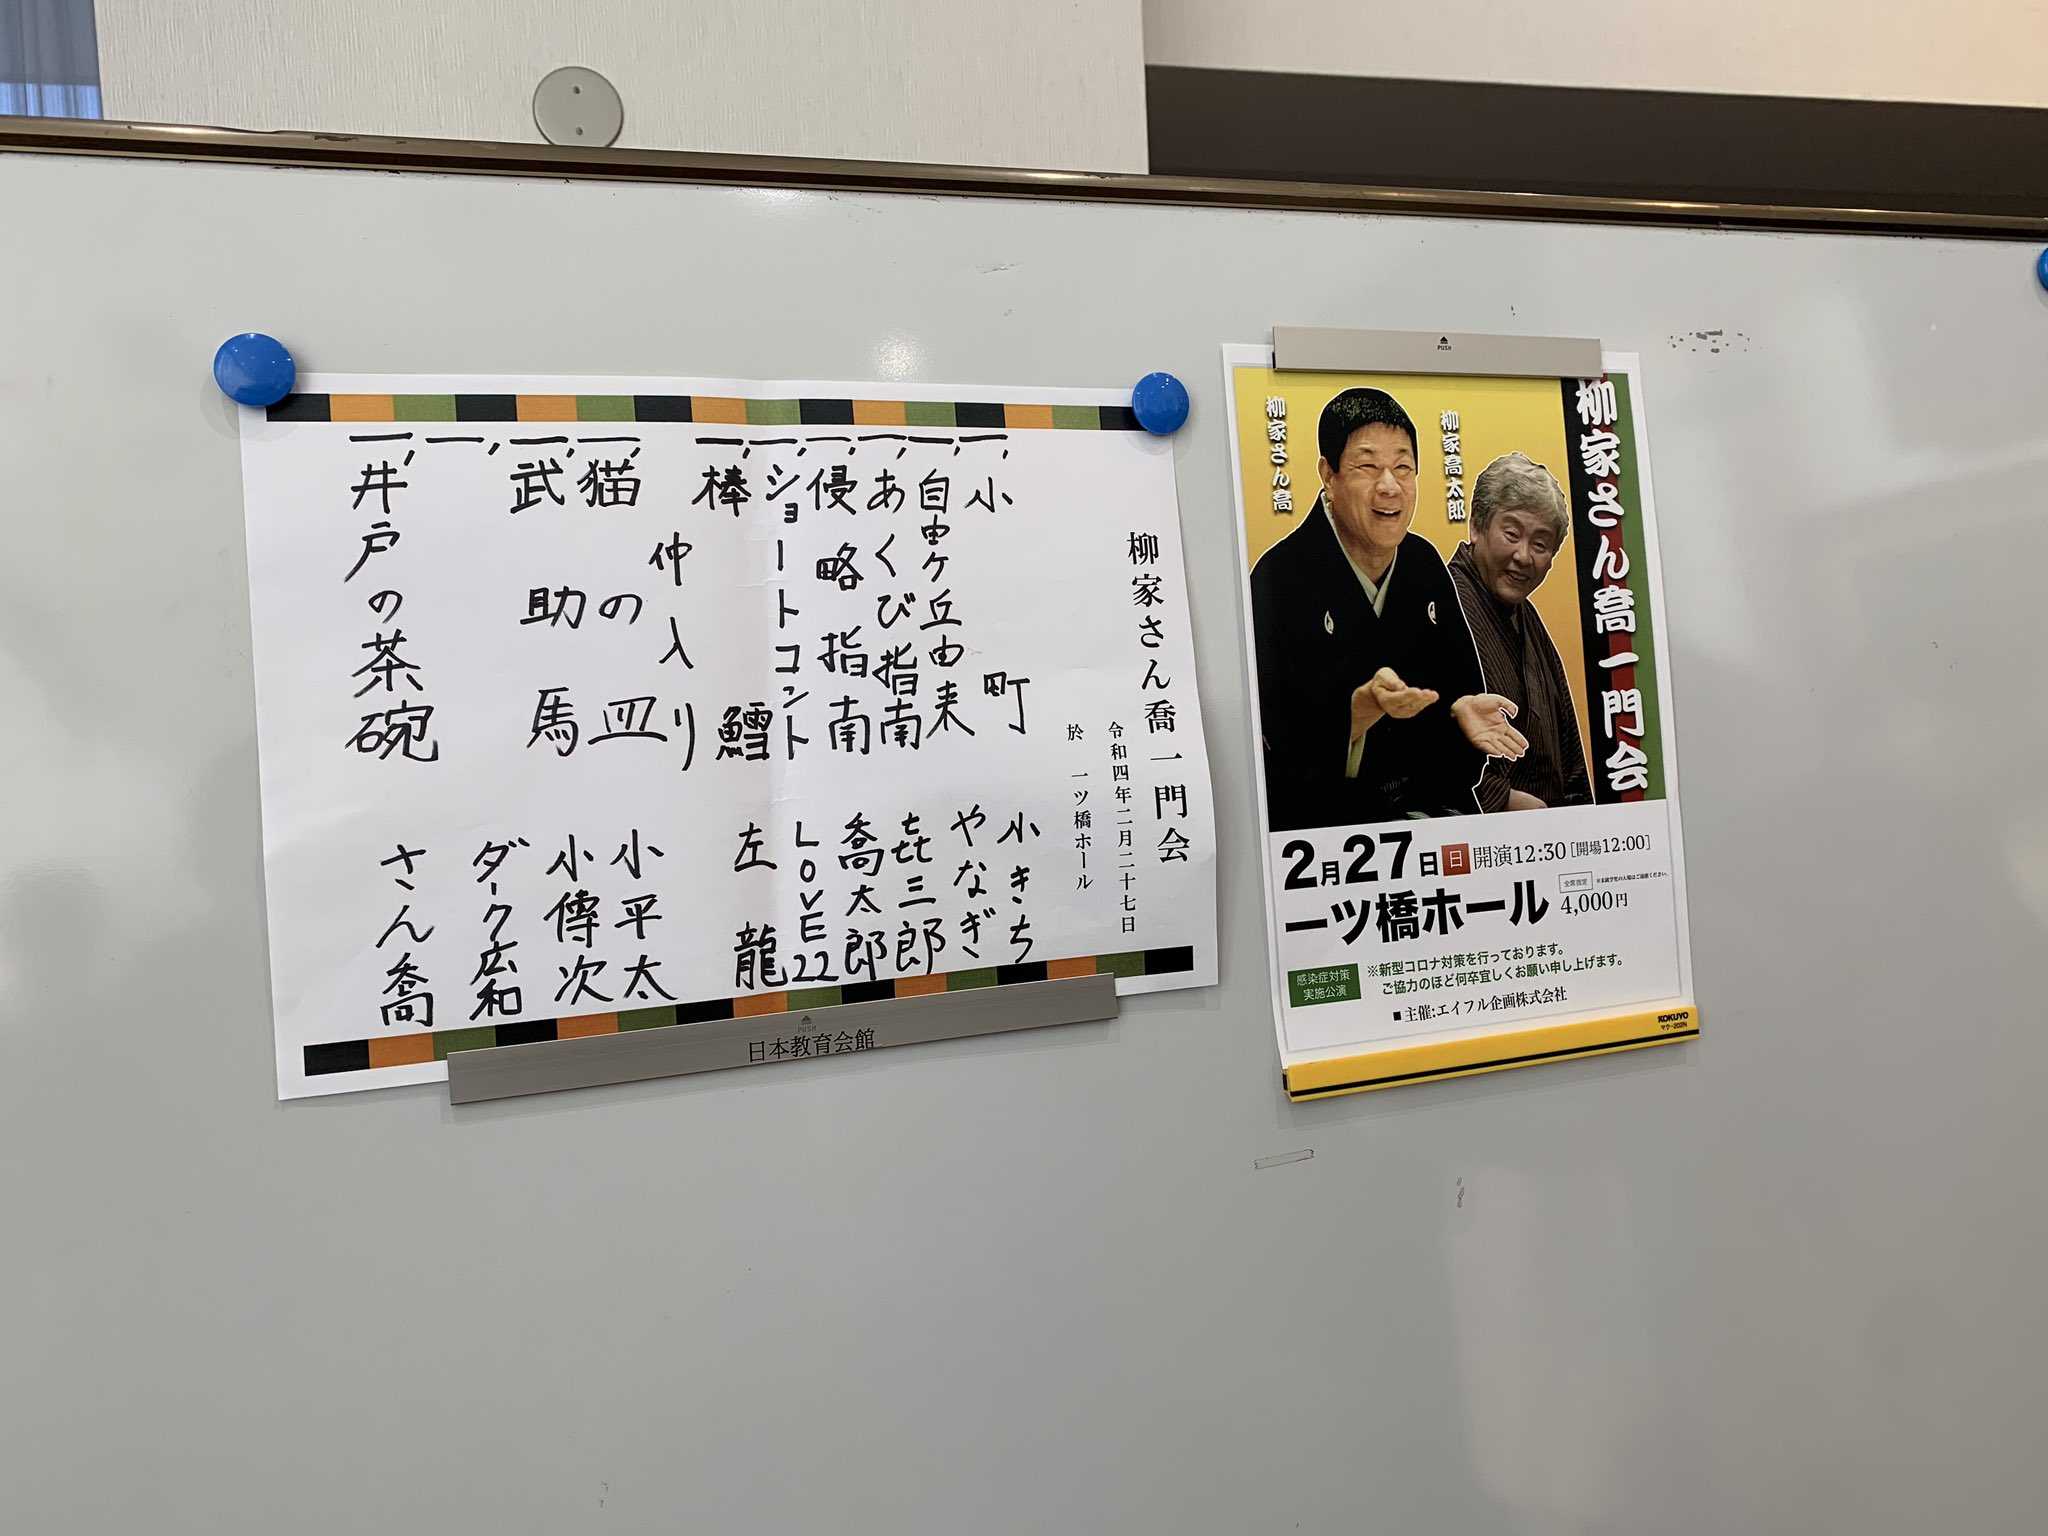 柳家さん喬一門会
令和四年二月二十七日
於 一ツ橋ホール
一、小町 小きち
一、自由ヶ丘由来 やなぎ
一、あくび指南 㐂三郎
一、侵略指南 喬太郎
一、ショートコント LOVE22
一、棒鱈 左龍
仲入り
一、猫の皿 小平太
一、武助馬 小傳次
一、 ダーク広和
一、井戸の茶碗 さん喬
PUSH
日本教育会館
PUSH
柳家さん喬一門会
柳家喬太郎
柳家さん喬
2月27日 日 開演12:30[開場12:00]
一ツ橋ホール
全席指定 ※未就学児の入場はご遠慮ください。
4,000円
感染症対策
実施公演
※新型コロナ対策を行っております。
ご協力のほど何卒宜しくお願い申し上げます。
■主催:エイフル企画株式会社
KOKUYO
マク-202N